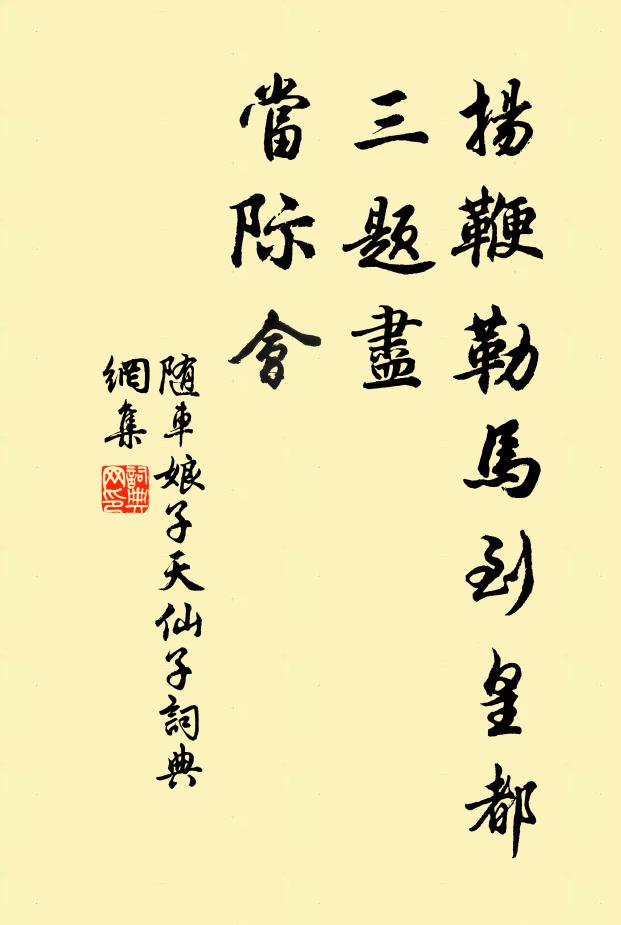 揚鞭勒馬到皇都
三题盡
當际會
随車娘子天仙子詞典
網集
詞典
网印